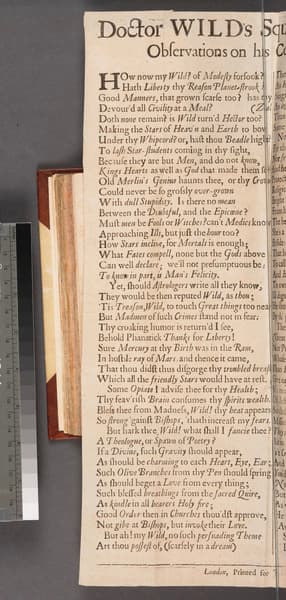 Doctor WILD's Squ
Observations on his Co
HOw now my Wild? of Modesty forsook?
Hath Liberty thy Reason Planet-strook?
Good Manners, that grown scarse too? has thy
Devour'd all Civility at a Meal?
Doth none remain? is Wild turn'd Hector too?
Making the Stars of Heav'n and Earth to bow
Under thy Whipcord? or, hast thou Beadle hight
To lash Star-students coming in thy sight,
Because they are but Men, and do not know,
Kings Hearts as well as God that made them so?
Old Merlin's Genius haunts thee, or thy
Could never be so grosly over-grown
With dull Stupidity. Is there no mean
Between the Doubtful, and the Epicene?
Must men be Fools or Witches? can't Medicks know
Approaching Ills, but just the hour too?
How Stars incline, for Mortals is enough;
What Fates compell, none but the Gods above
Can well declare; we'll not presumptuous be;
To know in part, is Man's Felicity.
Yet, should Astrologers write all they know,
They would be then reputed Wild, as thou;
'Tis Treason, Wild, to touch Great things too near
But Madmen of such Crimes stand not in fear.
Thy croaking humor is return'd I see,
Behold Phanatick Thanks for Liberty!
Sure Mercury at thy Birth was in the Ram,
In hostile ray of Mars, and thence it came,
That thou didst thus disgorge thy troubled breast
Which all the friendly Stars would have at rest.
Some Opiate I advise thee for thy Health;
Thy feav'rish Brain consumes thy spirits wealth.
Bless thee from Madness, Wild! thy heat appears
So strong 'gainst Bishops, that h'increast my fears.
But hark thee, Wild! what shall I fancie thee?
A Theologue, or Spawn of Poetry?
If a Divine, such Gravity should appear,
As should be charming to each Heart, Eye, Ear;
Such Olive Branches from thy Pen should spring
As should beget a Love from every thing;
Such blessed breathings from the sacred Quire,
As kindle in all hearers Holy fire;
Good Order then in Churches thou'dst approve,
Not gibe at Bishops, but invoke their Love.
But ah! my Wild, no such perswading Theme
Art thou possest of, (scarsely in a dream)
London, Printed for